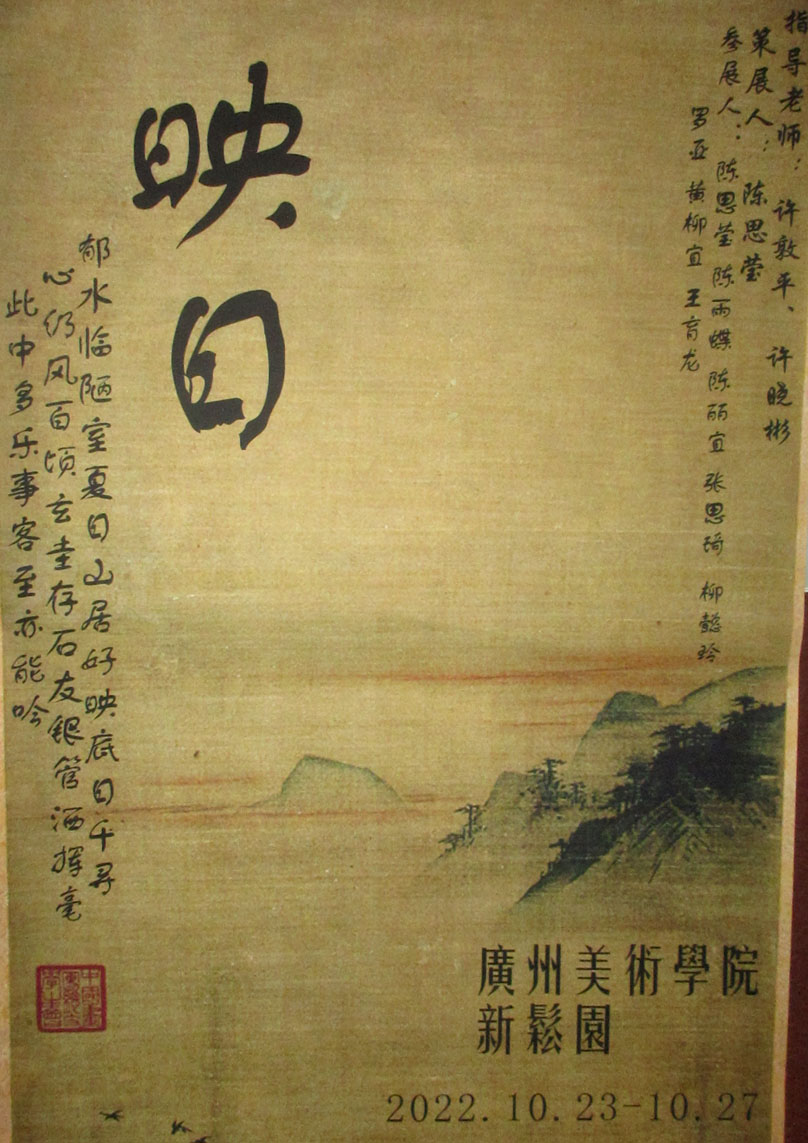 指导老师：许敦平、许晓彬
策展人：陈思莹
参展人：陈思莹 陈雨蝶 陈丽宜 张思琦 柳懿玲
罗亚 黄柳宜 王育龙
映日
郁水临陋室夏日山居好映底日千寻
心仍风百顷玄圭存石友银管洒挥毫
此中多乐事客至亦能吟
廣州美術學院
新鬆園
2022.10.23-10.27